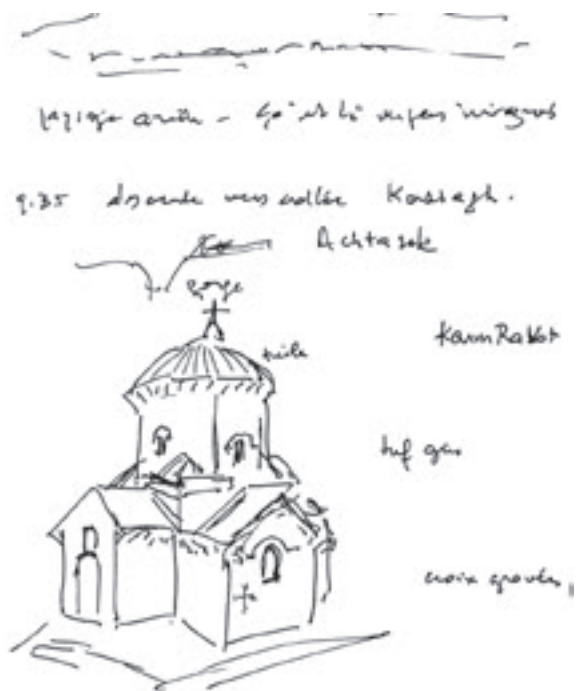 paysage aride - çà et là
9.35 descente vers vallée Kassagh.
Achtarak
gorge
tuile
Karmravor
tuf gris
croix gravées